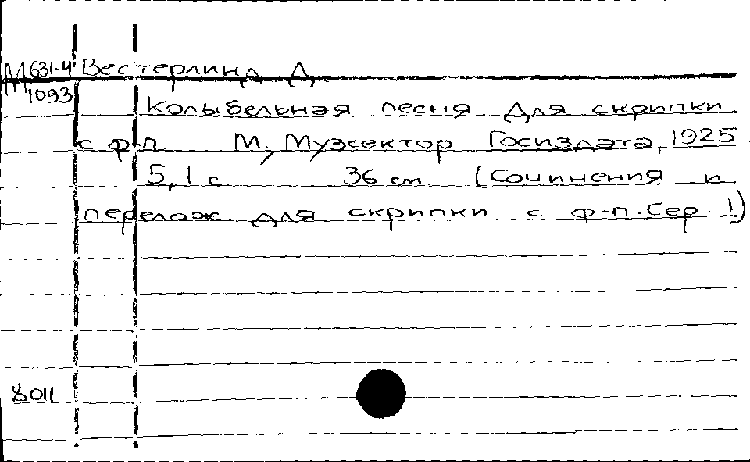 М 631-4 Вестерлинд А.
1093
Колыбельная песня для скрипки
с ф.п. М., Музсектор Госиздата, 1925
5,1 с 36 см (Сочинения и
перелож для скрипки с ф-п. Сер 1)
8011